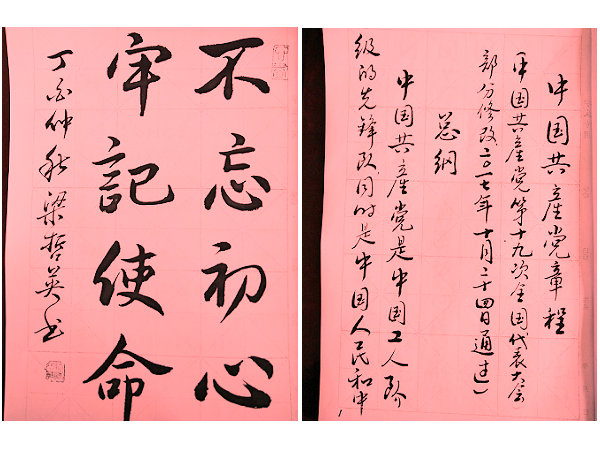 不忘初心
牢記使命
丁酉仲秋梁哲英书
中国共産党章程
（中国共産党第十九次全国代表大会
部分修改二〇一七年十月二十四日通过）
总纲
中国共産党是中国工人阶
级的先锋队同时是中国人民和中